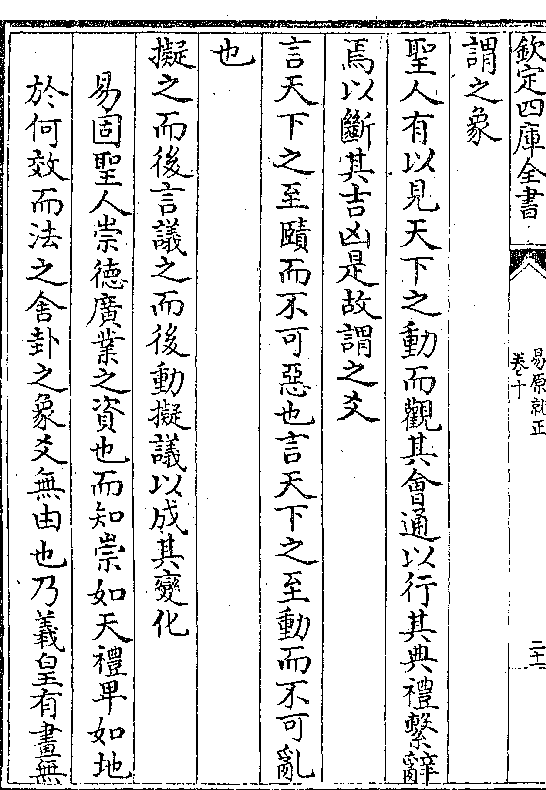 欽定四庫全書
易原就正
卷十
二十一
謂之象
聖人有以見天下之動而觀其會通以行其典禮繫辭
焉以斷其吉凶是故謂之爻
言天下之至賾而不可惡也言天下之至動而不可亂
也
擬之而後言議之而後動擬議以成其變化
易固聖人崇德廣業之資也而知崇如天禮卑如地
於何效而法之舍卦之象爻無由也乃羲皇有畫無